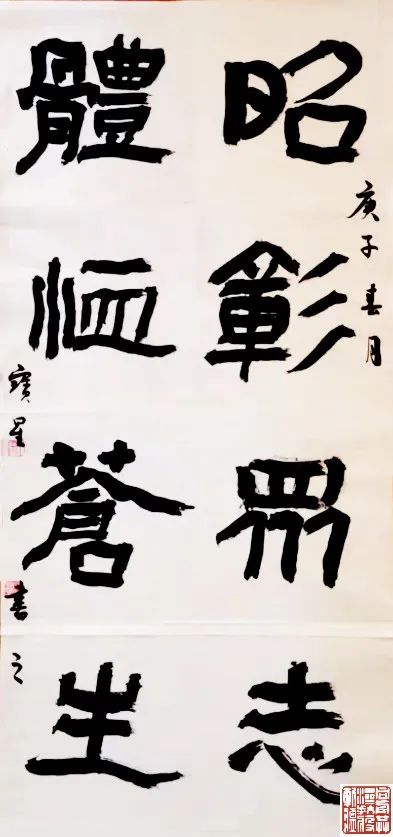 庚子春月
昭彰眾志
體恤蒼生
寶星書之